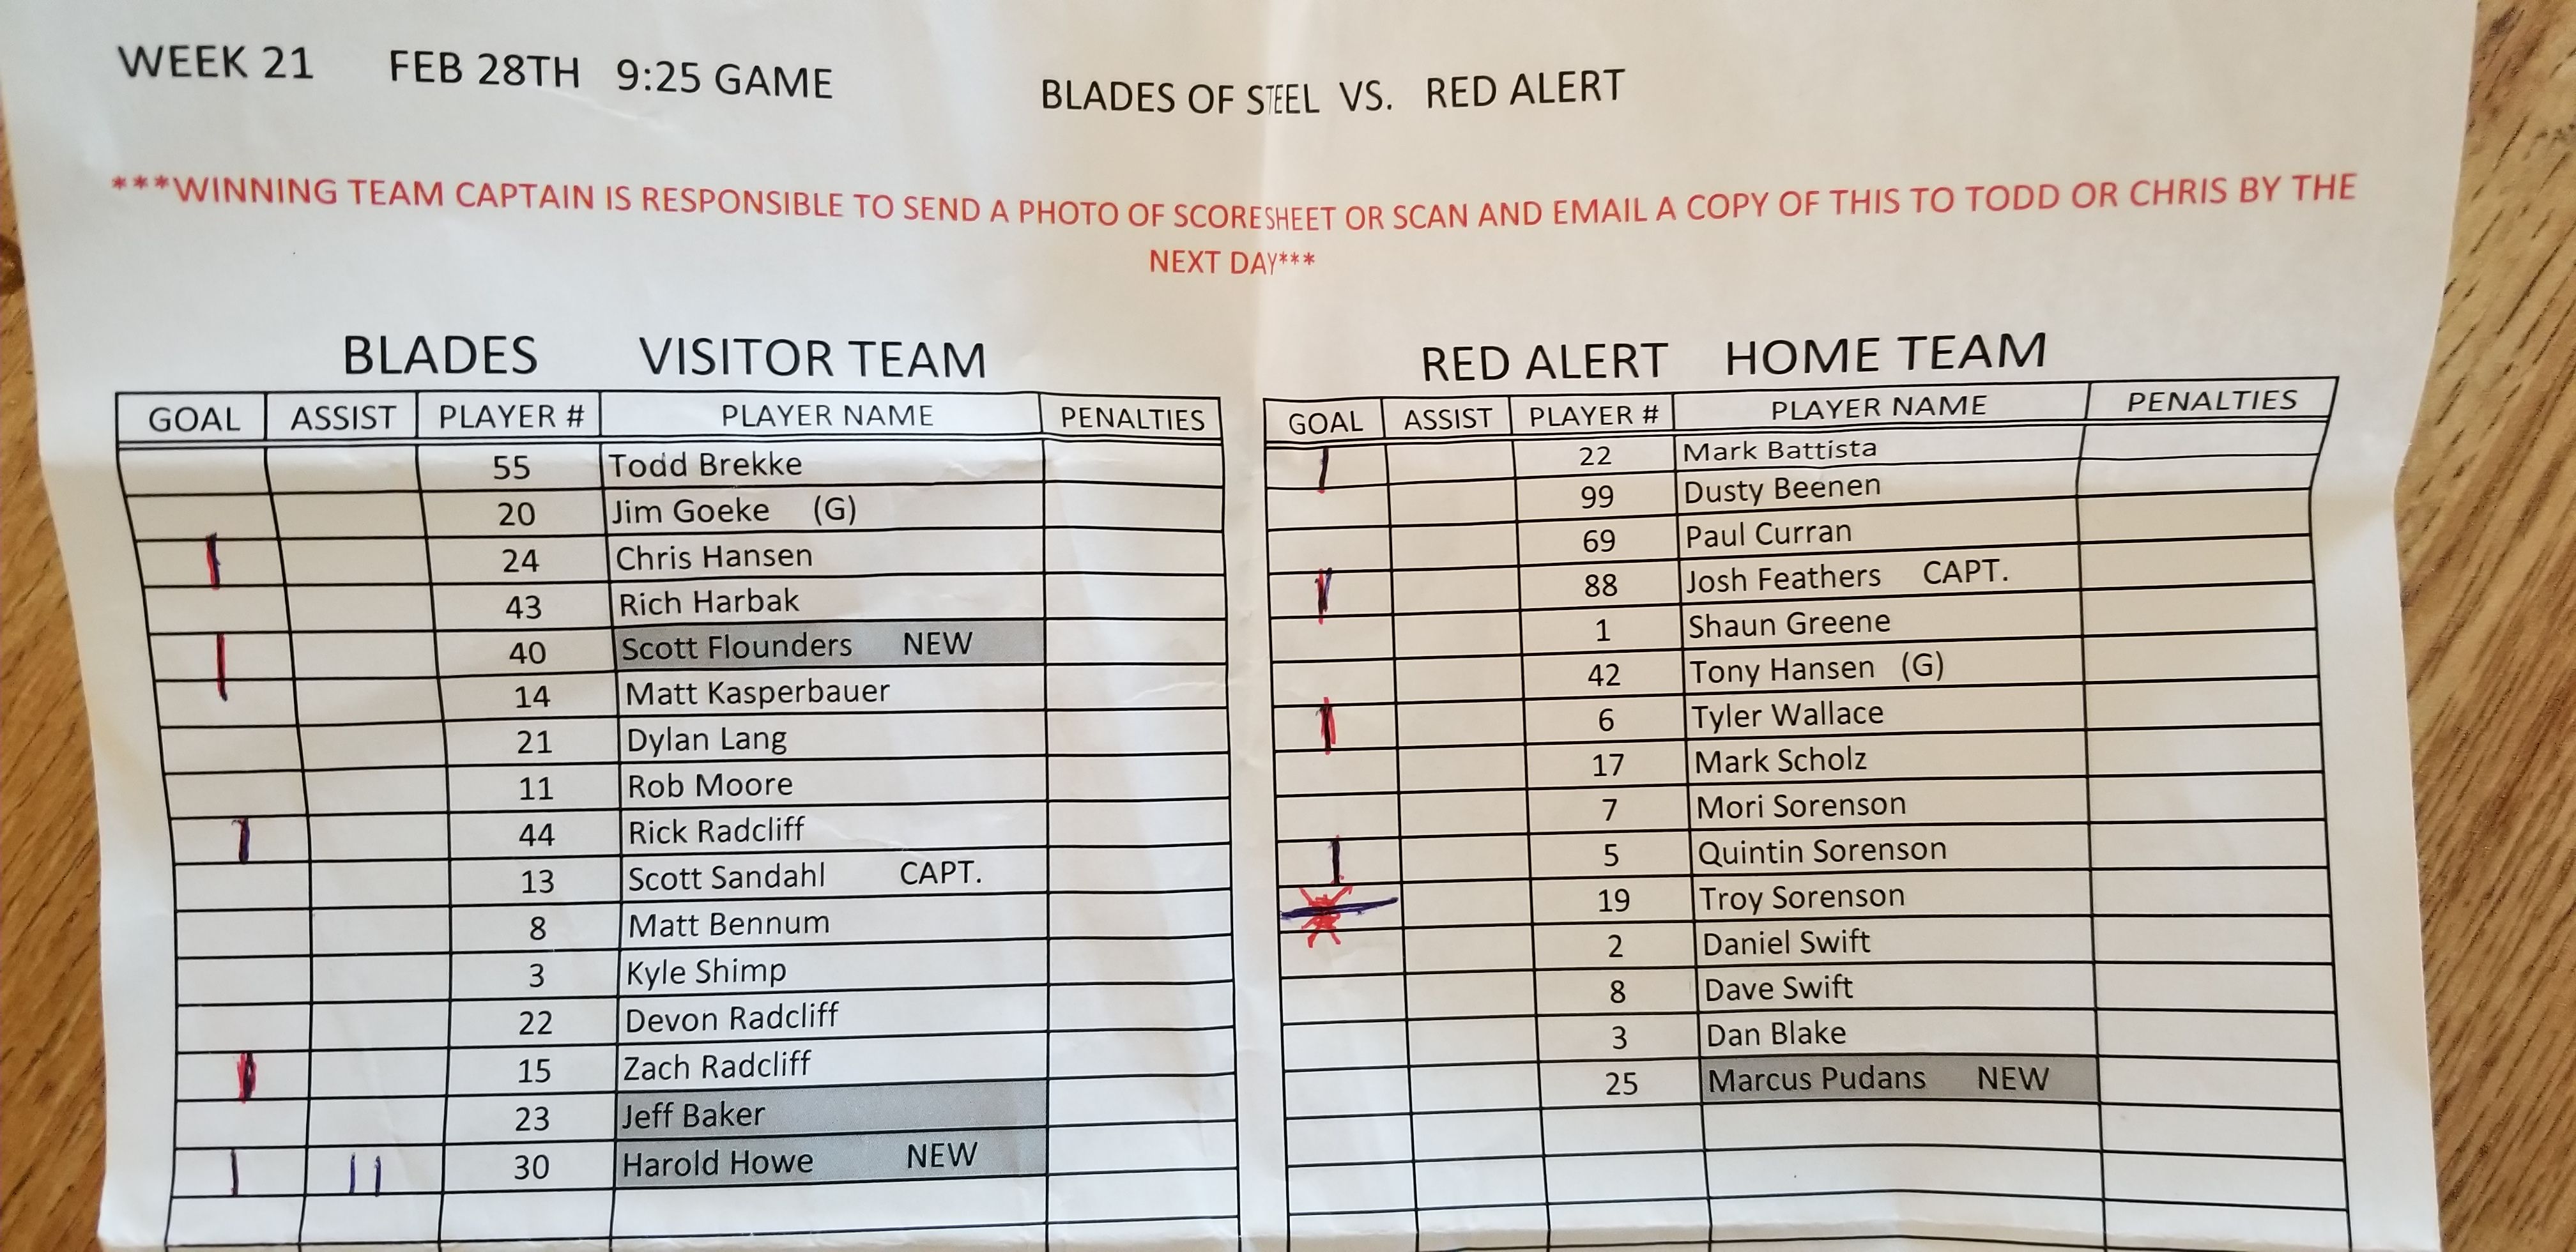 WEEK 21 FEB 28TH 9:25 GAME BLADES OF STEEL VS. RED ALERT
***WINNING TEAM CAPTAIN IS RESPONSIBLE TO SEND A PHOTO OF SCORESHEET OR SCAN AND EMAIL A COPY OF THIS TO TODD OR CHRIS BY THE
NEXT DAY***
BLADES VISITOR TEAM
GOAL ASSIST PLAYER # PLAYER NAME PENALTIES
55 Todd Brekke
20 Jim Goeke (G)
| 24 Chris Hansen
43 Rich Harbak
| 40 Scott Flounders NEW
14 Matt Kasperbauer
21 Dylan Lang
11 Rob Moore
| 44 Rick Radcliff
13 Scott Sandahl CAPT.
8 Matt Bennum
3 Kyle Shimp
22 Devon Radcliff
| 15 Zach Radcliff
23 Jeff Baker
| || 30 Harold Howe NEW
RED ALERT HOME TEAM
GOAL ASSIST PLAYER # PLAYER NAME PENALTIES
| 22 Mark Battista
99 Dusty Beenen
69 Paul Curran
| 88 Josh Feathers CAPT.
1 Shaun Greene
42 Tony Hansen (G)
| 6 Tyler Wallace
17 Mark Scholz
7 Mori Sorenson
| 5 Quintin Sorenson
19 Troy Sorenson
2 Daniel Swift
8 Dave Swift
3 Dan Blake
25 Marcus Pudans NEW